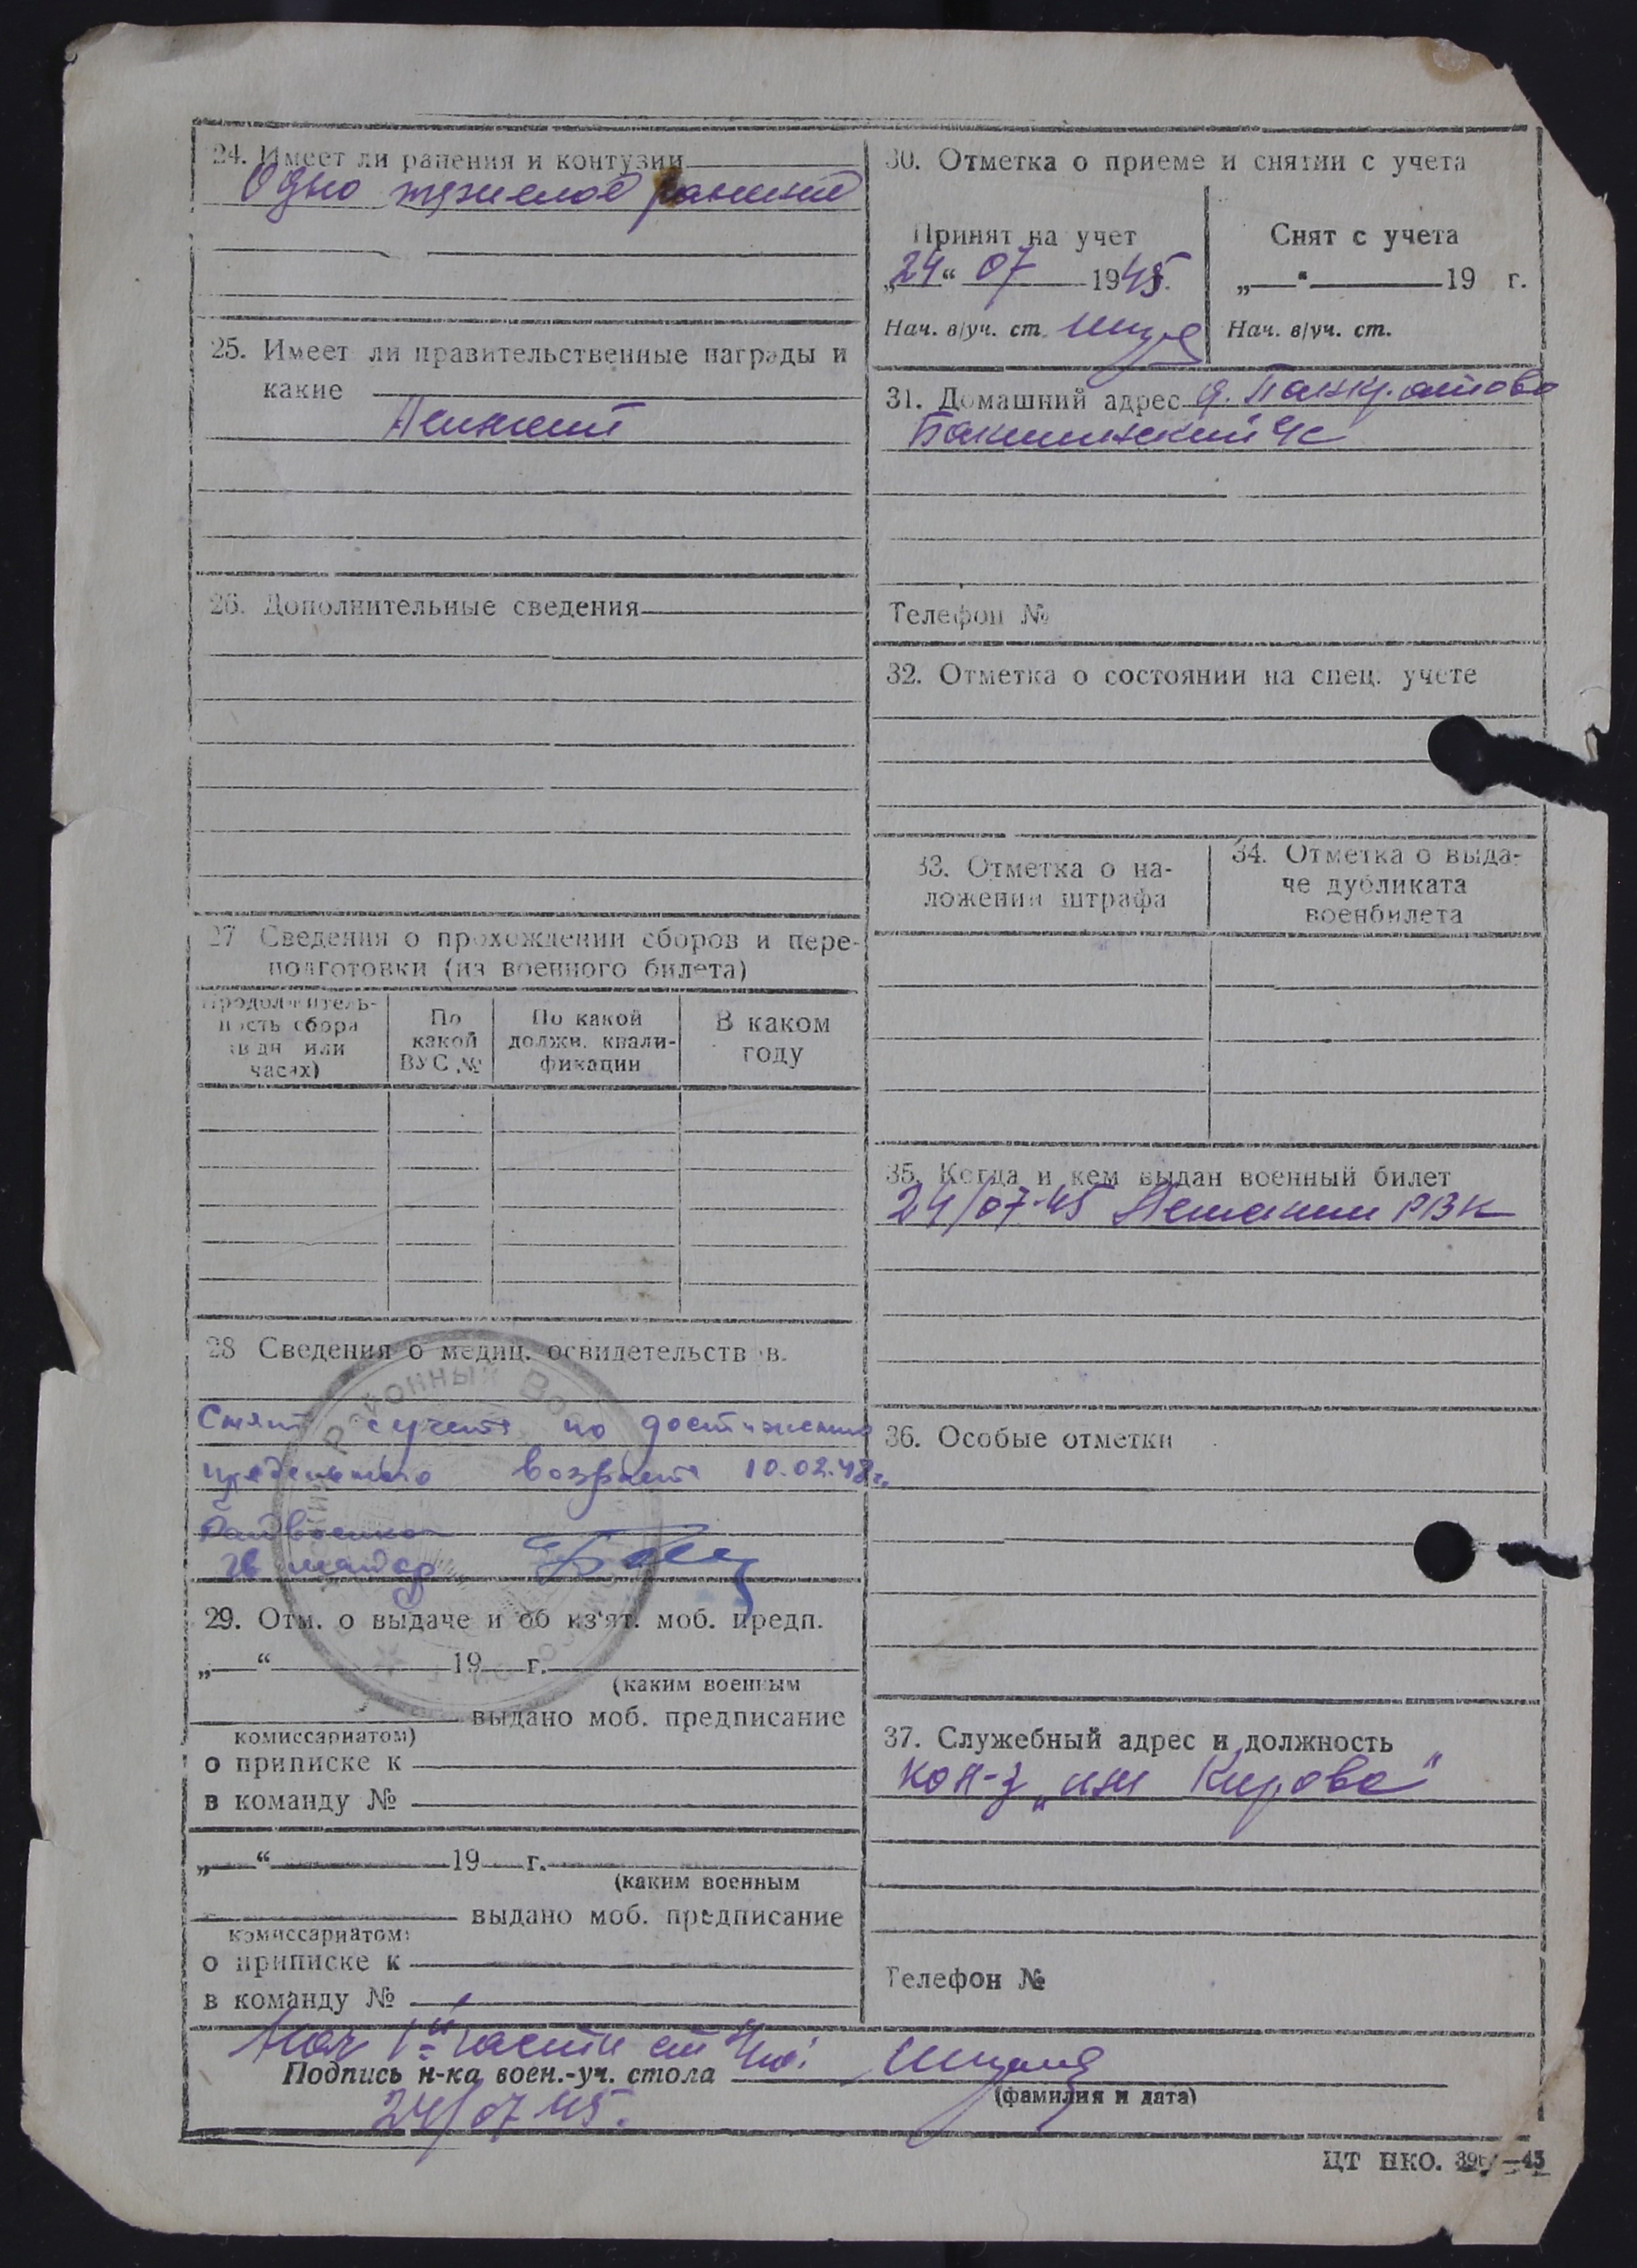 24. Имеет ли ранения и контузии
Одно тяжелое ранение
25. Имеет ли правительственные награды и
какие
Не имеет
26. Дополнительные сведения
27 Сведения о прохождении сборов и пере-
подготовки (из военного билета)
Продолжитель-
ность сбора
(в дн или
часах)
По
какой
ВУС №
По какой
должн. квали-
фикации
В каком
году
28 Сведения о медиц. освидетельств в.
Снят с учета по достижению
предельного возраста 10.02.48 г.
Гв майор
29. Отм. о выдаче и об из'ят. моб. предп.
„ “ 19 г.
(каким военным
выдано моб. предписание
комиссариатом)
о приписке к
в команду №
„ “ 19 г.
(каким военным
выдано моб. предписание
комиссариатом)
о приписке к
в команду №
30. Отметка о приеме и снятии с учета
Принят на учет
„24“ 07 1945.
Нач. в/уч. ст.
Снят с учета
„ “ 19 г.
Нач. в/уч. ст.
31. Домашний адрес д. Панкратово
Бакшинский с/с
Телефон №
32. Отметка о состоянии на спец. учете
33. Отметка о на-
ложении штрафа
34. Отметка о выда-
че дубликата
военбилета
35. Когда и кем выдан военный билет
24/07-45 РВК
36. Особые отметки
37. Служебный адрес и должность
кол-з „им Кирова"
Телефон №
Нач 1й части ст
Подпись н-ка воен.-уч. стола
(фамилия и дата)
24/07 45.
ЦТ НКО. —45